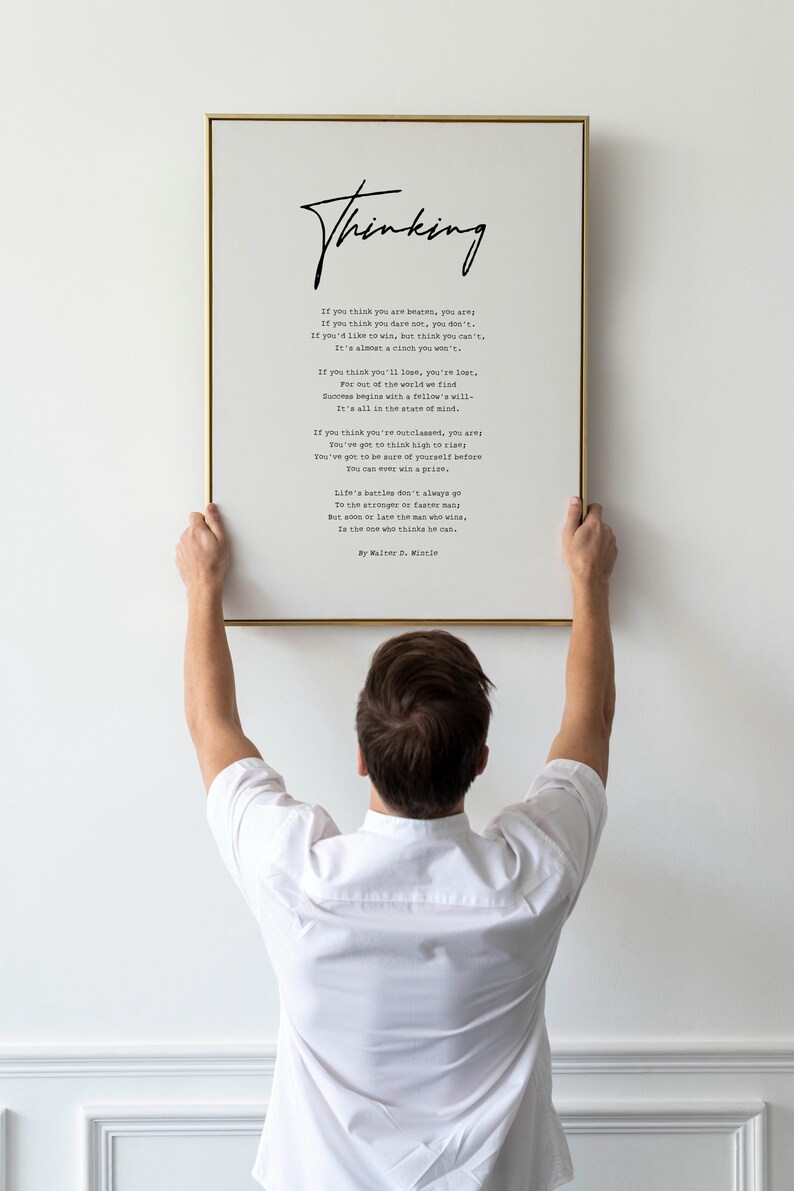 Thinking
If you think you are beaten, you are;
If you think you dare not, you don't.
If you'd like to win, but think you can't,
It's almost a cinch you won't.
If you think you'll lose, you're lost,
For out of the world we find
Success begins with a fellow's will-
It's all in the state of mind.
If you think you're outclassed, you are;
You've got to think high to rise;
You've got to be sure of yourself before
You can ever win a prize.
Life's battles don't always go
To the stronger or faster man;
But soon or late the man who wins,
Is the one who thinks he can.
By Walter D. Wintle